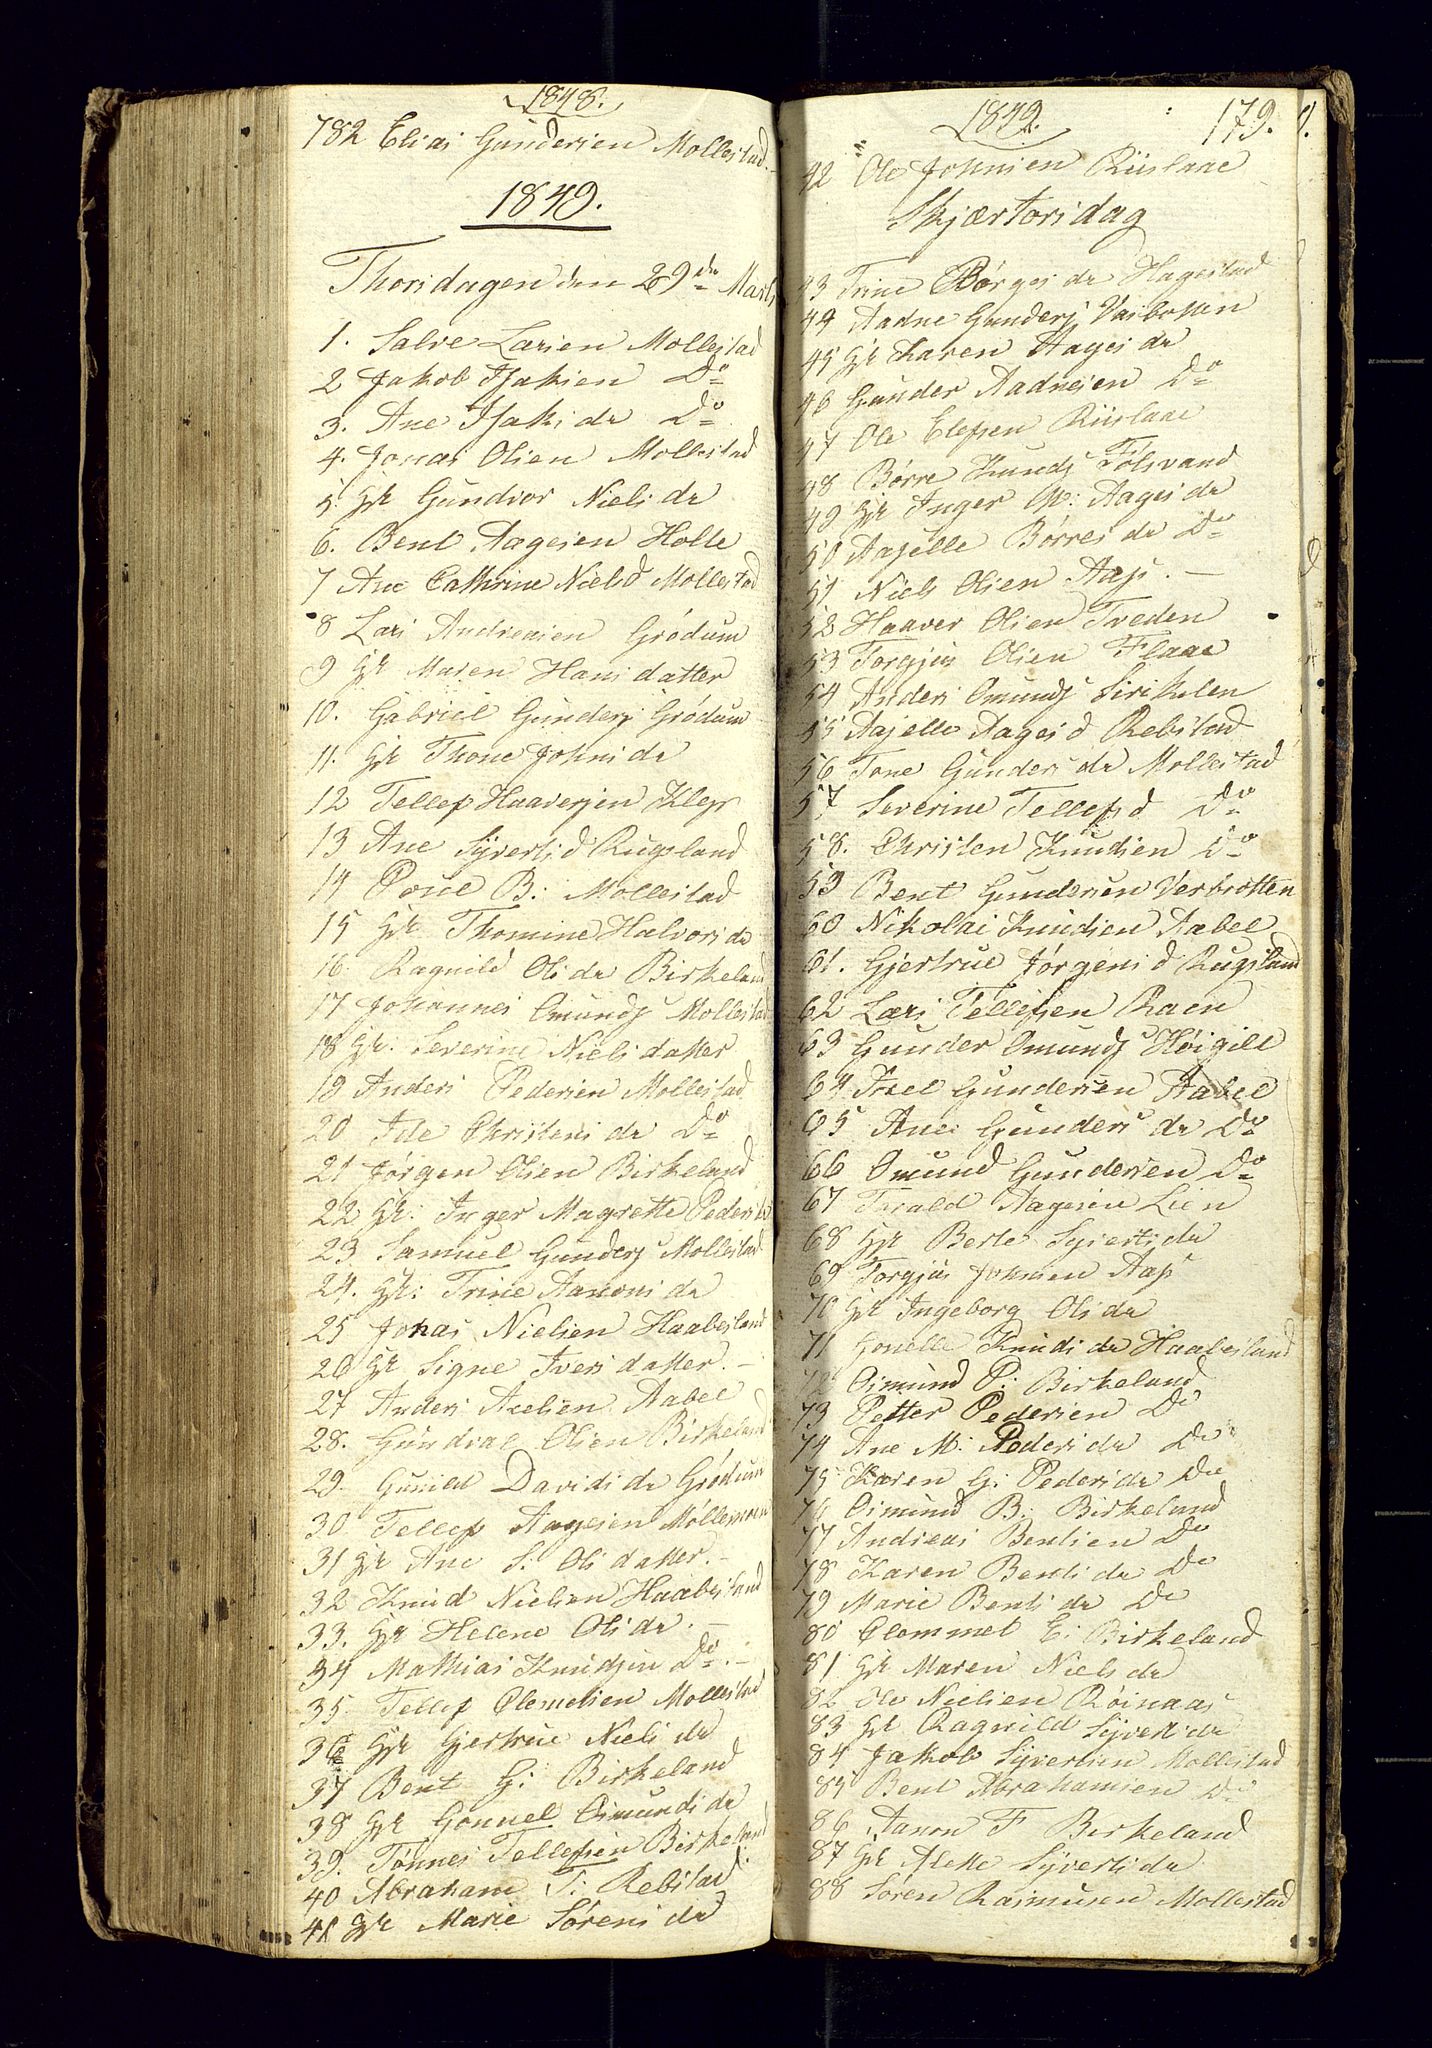 1848.
782 Elias Gundersen Mollestad
1849.
Thorsdagen den 29de Marts
1. Salve Larsen Mollestad
2 Jakob Isaksen Do
3. Ane Isaks dr Do
4. Jonas Olsen Mollestad
5. Gk Gundvor Niels dr
6. Bent Aagesen Holte
7 Ane Cathrine Nielsd Mollestad
8 Lars Andreasen Grödum
9 Gk Maren Hans datter
10. Gabriel Gunders Grödum
11. Gk Thone Johns dr
12 Tellef Haaversen Klep
13 Ane Syverts d Rugsland
14 Poul B: Mollestad
15 Gk Thomine Halvors dr
16. Ragnild Ols dr Birkeland
17 Johannes Omunds Mollestad
18 Gk: Severine Niels datter
19 Anders Pedersen Mollestad
20 Christens dr Do
21 Jörgen Olsen Birkeland
22 Gk: Inger Magrette Peders dr
23 Samuel Gunders Mollestad
24. Gk: Trine Aanons dr
25 Jonas Nielsen Haabesland
26 Gk Signe Ivers datter. –
27 Anders Axelsen Aabel
28. Gundval Olsen Birkeland
29. Gunild Davids dr Grödum
30 Tellef Aagesen Möllemoen
31 Gk Ane S: Ols datter. –
32 Knud Nielsen Haabesland
33. Gk Helene Ols dr. –
34 Mathias Knudsen Do. –
35. Tellef Clemetsen Mollestad
36 Gk Gjertrue Niels dr
37 Bent G: Birkeland
38 Gk Gonnel Osmunds dr
39. Tönnes Tellefsen Birkeland
40 Abraham T: Rebstad
41 Gk Marie Sörens dr
1849. 179.
42 Ole Johnsen Riislaae
Skjærtorsdag
43 Trine Börges dr Hagestad
44 Aadne Gunders
45 Gk Karen Aages dr
46 Gunder Aadnesen Do
47 Ole Elefsen Riislaae
48 Börre Knuds Fölsvand
49 Gk Inger M: Aages dr
50 Aaselle Börres dr Do
51 Niels Olsen Aas. –
52 Haaver Olsen Tveden
53 Torgjus Olsen Flaae
54 Anders Omunds Sirikelen
55 Aaselle Aages d Rebstad
56 Tone Gunders dr Mollestad
57 Severine Tellefs d Do
58. Christen Knudsen Do
59 Bent Gundersen Verbrotten
60 Nikolai Knudsen Aabel
61. Gjertrue Jörgens d Rugsland
62 Lars Tellefsen Raen
63 Gunder Omunds Höigilt
64 Axel Gundersen Aabel
65 Ane Gunders dr Do
66 Omund Gundersen Do
67 Aagesen Lien
68 Gk Berte Syverts dr
69 Torgjus Johnsen Aas
70 Gk Ingeborg Ols dr
71 Gonelle Knuds dr Haabesland
72 Osmund P: Birkeland
73 Petter Pedersen Do
74 Ane M: Peders dr Do
75 Karen G: Peders dr Do
76 Osmund B: Birkeland
77 Andreas Bentsen Do
78 Karen Bents dr Do
79 Marie Bents dr Do
80 Clemmet E: Birkeland
81 Gk Maren Niels dr
82 Ole Nielsen Röinaas
83 Gk Ragnild Syverts dr
84 Jakob Syvertsen Mollestad
85 Bent Abrahamsen Do
86 Aanon F Birkeland
87 Gk Alette Syverts dr
88 Sören Rasmusen Mollestad